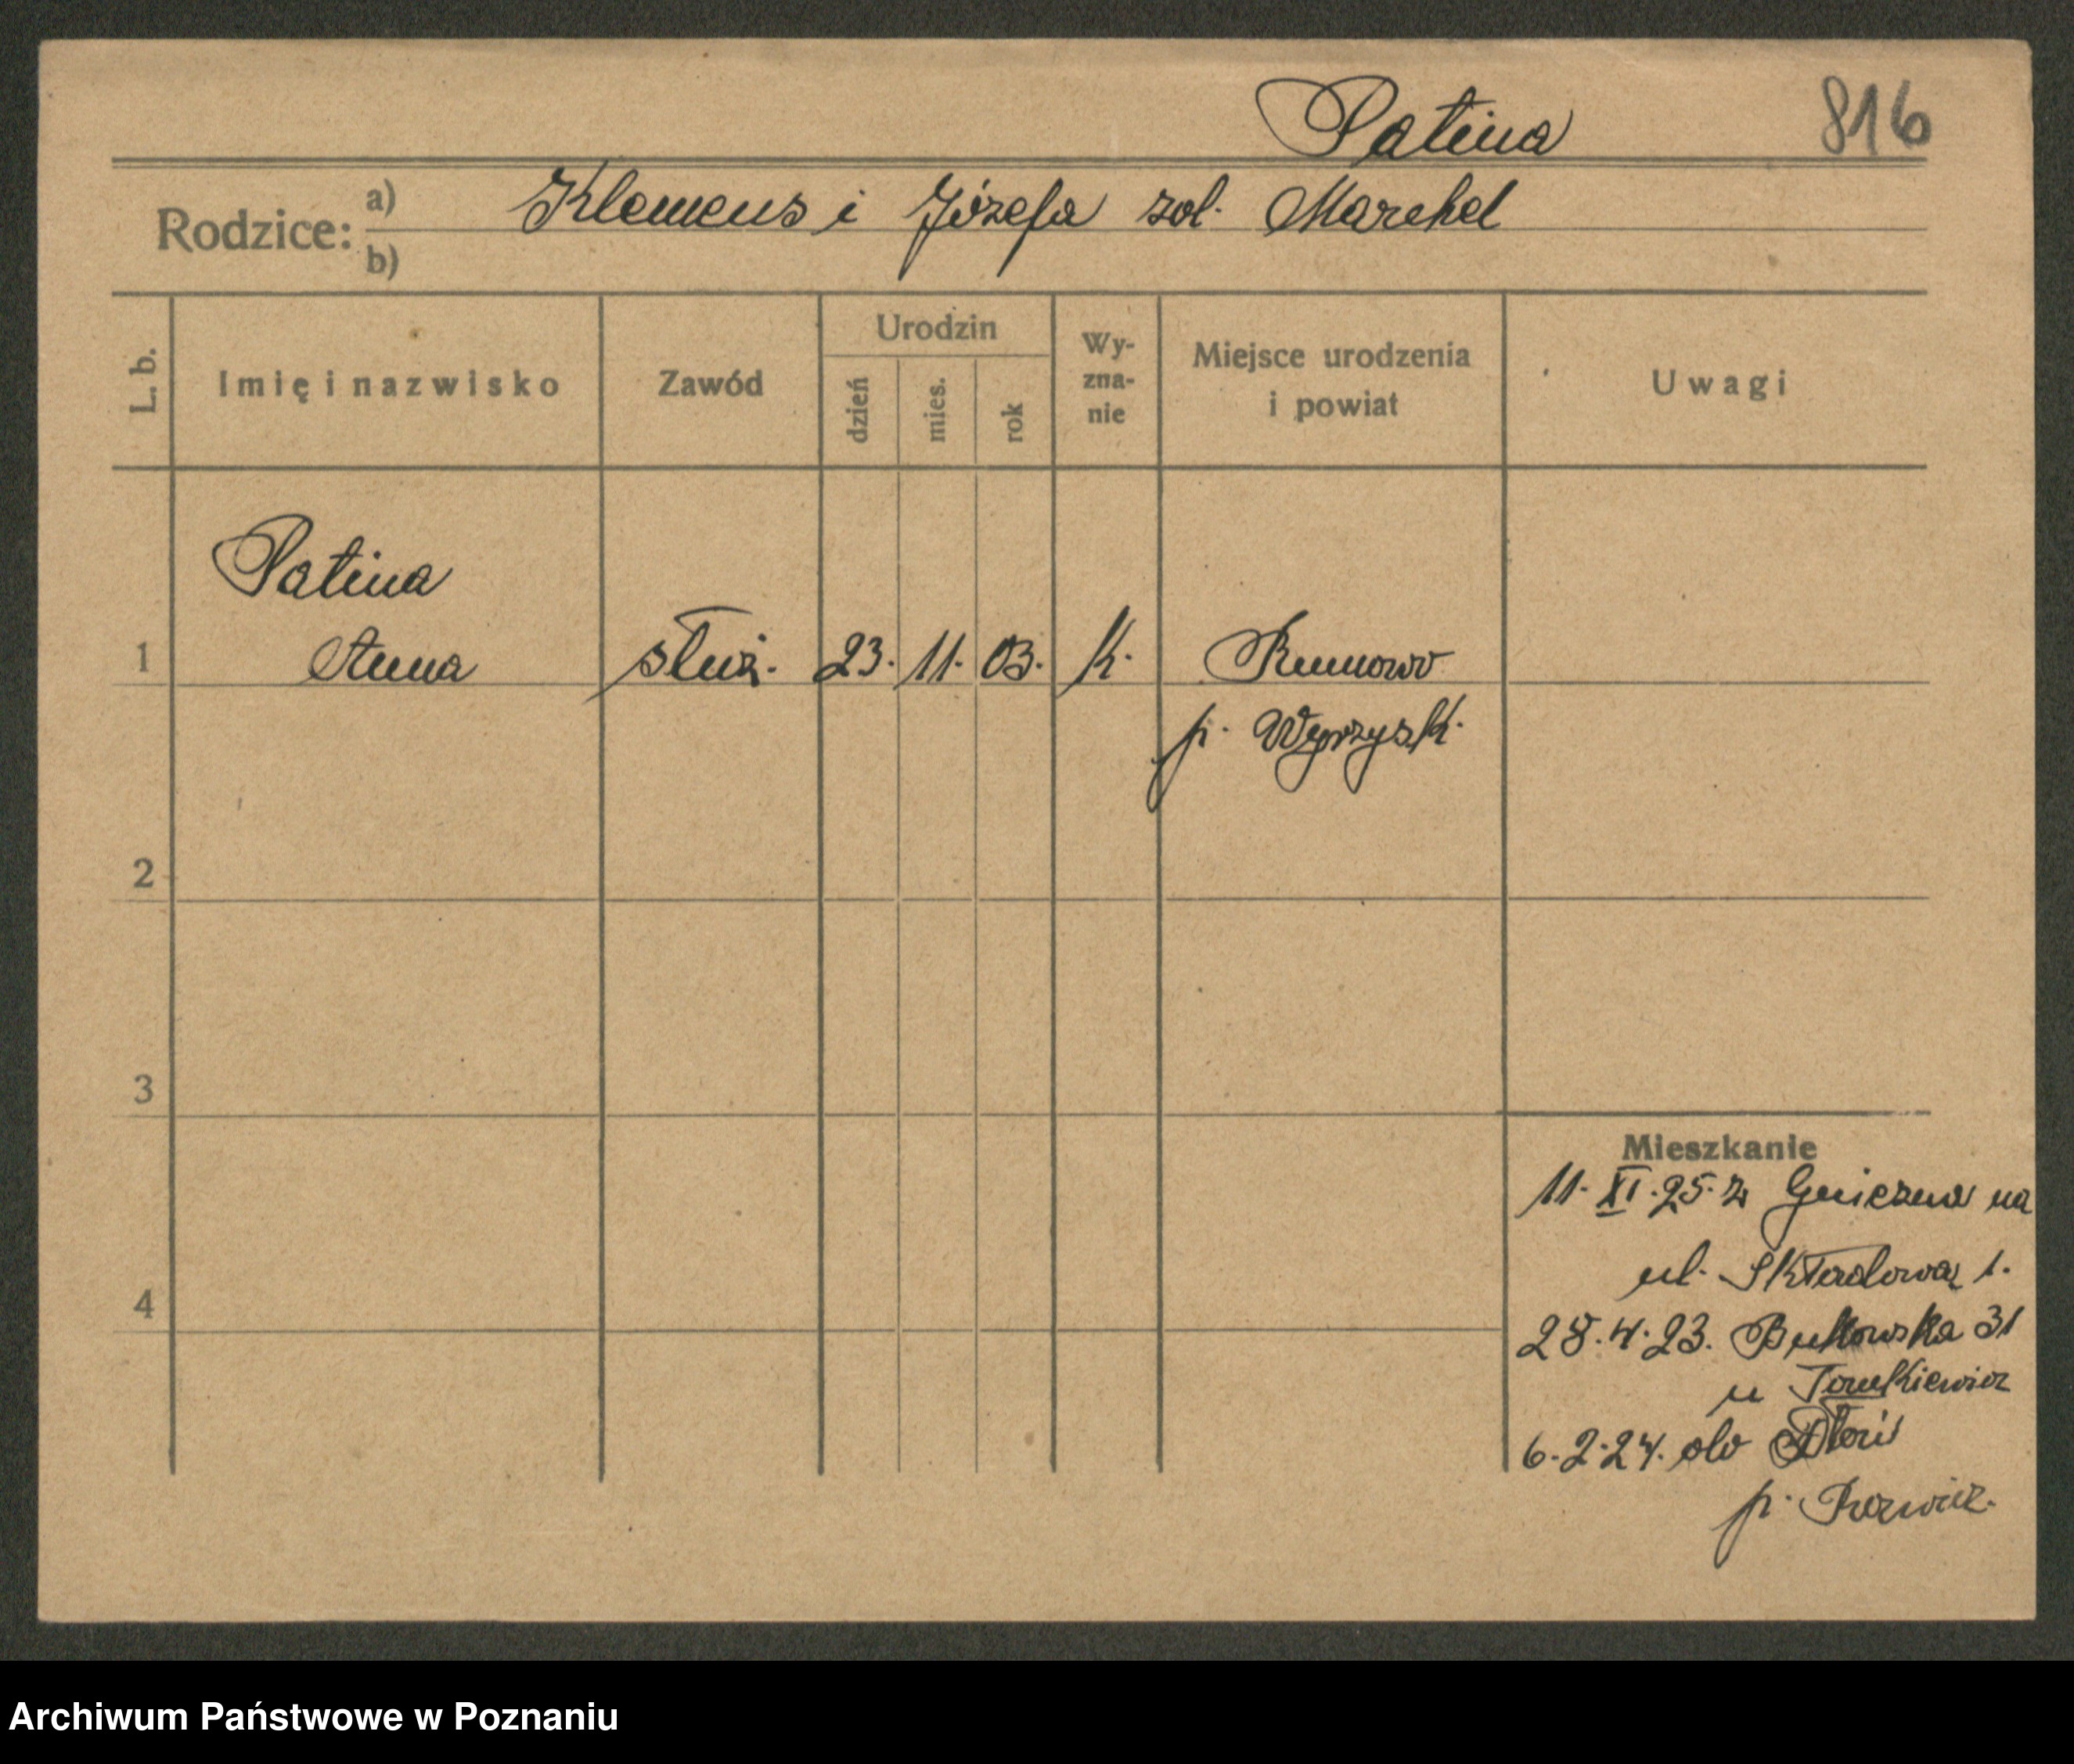 Patina 816
Rodzice: a) Klemens i Józefa zol. Marchel
b)
L. b. Imię i nazwisko Zawód Urodzin dzień mies. rok Wy-zna-nie Miejsce urodzenia i powiat Uwagi
Patina
1 Anna służ. 23. 11. 03. k. Runowo
p. Wyrzysk.
2
3
Mieszkanie
11. XI. 25. z Gniezna na
ul. Składową 1.
4
28. 4. 23. Bukowska 31
u Tomkiewicz
6. 2. 24. do
p.
Archiwum Państwowe w Poznaniu